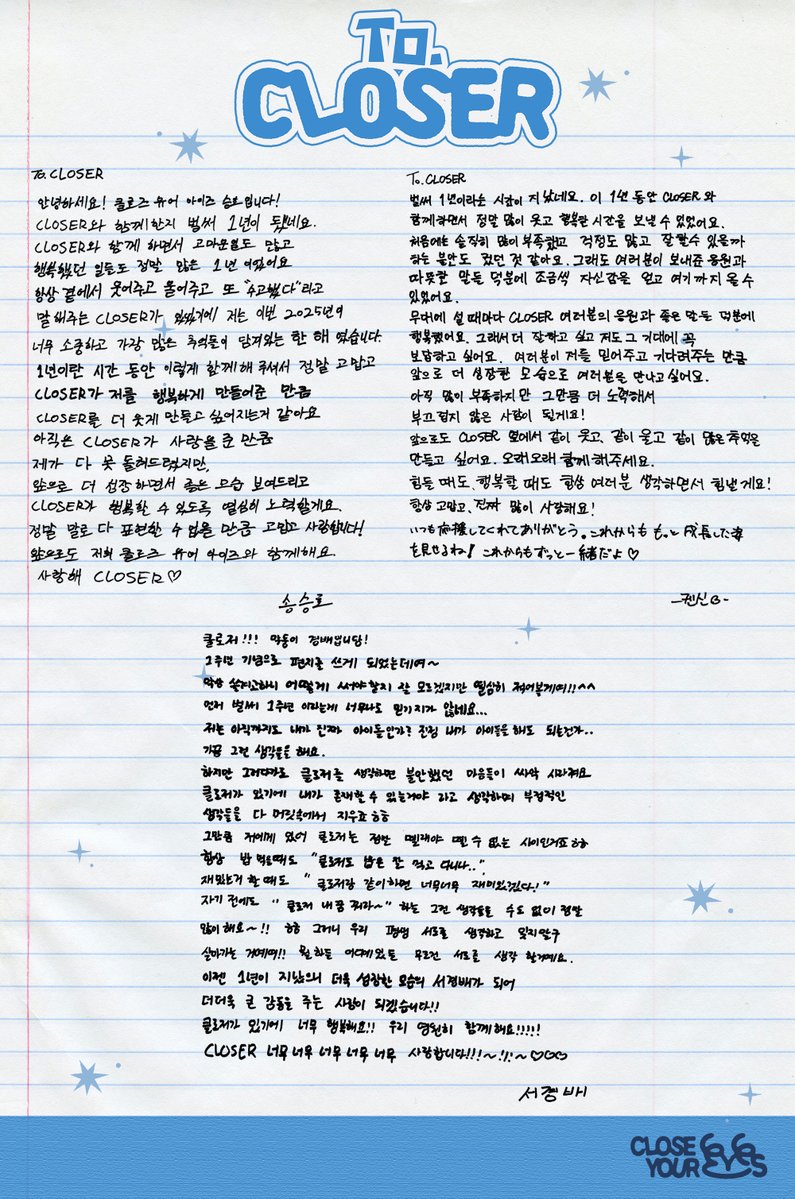 TO.
CLOSER
To. CLOSER
안녕하세요! 클로즈 유어 아이즈 승호입니다!
CLOSER와 함께한지 벌써 1년이 됐네요.
CLOSER와 함께 하면서 고마운일도 많고
행복했던 일들도 정말 많은 1년 이였어요
항상 곁에서 웃어주고 울어주고 또 "수고했다"라고
말해주는 CLOSER가 있었기에 저는 이번 2025년이
너무 소중하고 가장 많은 추억들이 담겨있는 한 해 였습니다.
1년이란 시간 동안 이렇게 함께해 주셔서 정말 고맙고
CLOSER가 저를 행복하게 만들어준 만큼
CLOSER를 더 웃게 만들고 싶어지는거 같아요
아직은 CLOSER가 사랑을 준 만큼
제가 다 못 돌려드렸지만,
앞으로 더 성장하면서 좋은 모습 보여드리고
CLOSER가 행복할 수 있도록 열심히 노력할게요.
정말 말로 다 표현할 수 없을 만큼 고맙고 사랑합니다!
앞으로도 저희 클로즈 유어 아이즈와 함께해요.
사랑해 CLOSER♡
송승호
To. CLOSER
벌써 1년이라는 시간이 지났네요. 이 1년 동안 CLOSER와
함께하면서 정말 많이 웃고 행복한 시간을 보낼 수 있었어요.
처음에는 솔직히 많이 부족했고 걱정도 많고 잘할수 있을까
하는 불안도 컸던 것 같아요. 그래도 여러분이 보내준 응원과
따뜻한 말들 덕분에 조금씩 자신감을 얻고 여기까지 올 수
있었어요.
무대에 설 때마다 CLOSER 여러분의 응원과 좋은 말들 덕분에
행복했어요. 그래서 더 잘하고 싶고 저도 그 기대에 꼭
보답하고 싶어요. 여러분이 저를 믿어주고 기다려주는 만큼
앞으로 더 성장한 모습으로 여러분을 만나고 싶어요.
아직 많이 부족하지만 그만큼 더 노력해서
부끄럽지 않은 사람이 될게요!
앞으로도 CLOSER 옆에서 같이 웃고, 같이 울고 같이 많은 추억을
만들고 싶어요. 오래오래 함께해주세요.
힘들 때도, 행복할 때도 항상 여러분 생각하면서 힘낼게요!
항상 고맙고, 진짜 많이 사랑해요!
いつも応援してくれてありがとう。これからももっと成長した姿
を見せるね! これからもずっと一緒だよ♡
-켄신B-
클로저!!! 막둥이 경배입니담!
1주년 기념으로 편지를 쓰게 되었는데여~
막상 쓸라고하니 어떻게 써야할지 잘 모르겠지만 열심히 적어볼게여!!^^
먼저 벌써 1주년 이라는게 너무나도 믿기지가 않네요...
저는 아직까지도 내가 진짜 아이돌인가? 진짐 내가 아이돌을 해도 되는건가..
가끔 그런 생각들을 해요.
하지만 그러다가도 클로저를 생각하면 불안했던 마음들이 싸악 사라져요
클로저가 있기에 내가 존재할 수 있는거야 라고 생각하며 부정적인
생각들을 다 머릿속에서 지우죠ㅎㅎ
그만큼 저에게 있어 클로저는 정말 뗄래야 뗄 수 없는 사이인거죠ㅎㅎ
항상 밥 먹을때도 "클로저도 밥은 잘 먹고 다니나..",
재밌는거 할 때도 "클로저랑 같이하면 너무너무 재미있겠다!"
자기 전에도 "클로저 내 꿈 꿔라~" 하는 그런 생각들을 수도 없이 정말
많이해요~!! ㅎㅎ 그러니 우리 평생 서로를 생각하고 잊지말구
살아가는 거예여!! 뭔하든 어디에있든 무조건 서로를 생각 할거예요.
이젠 1년이 지났으니 더욱 성장한 모습의 서경배가 되어
더더욱 큰 감동을 주는 사람이 되겠습니다!!
클로저가 있기에 너무 행복해요!! 우리 영원히 함께해요!!!!!
CLOSER 너무 너무 너무 너무 너무 사랑합니다!!!~!!~♡♡♡
서경배
CLOSE YOUR EYES